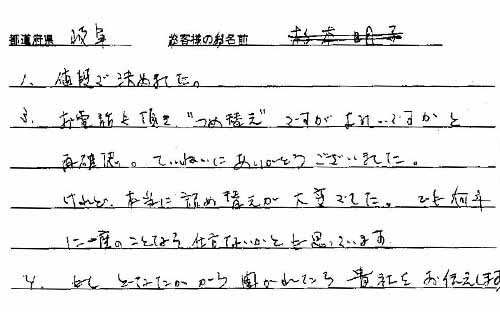 都道府県 岐阜 お客様のお名前
1. 値段で決めました。
3. お電話を頂き“つめ替え”ですがよろしいですかと
再確認。ていねいにありがとうございました。
けれど、本当に詰め替えが大変でした。でも何年
に一度のことなら仕方ないかとも思っています
4. もし どなたかから聞かれたら 貴社をお伝えします